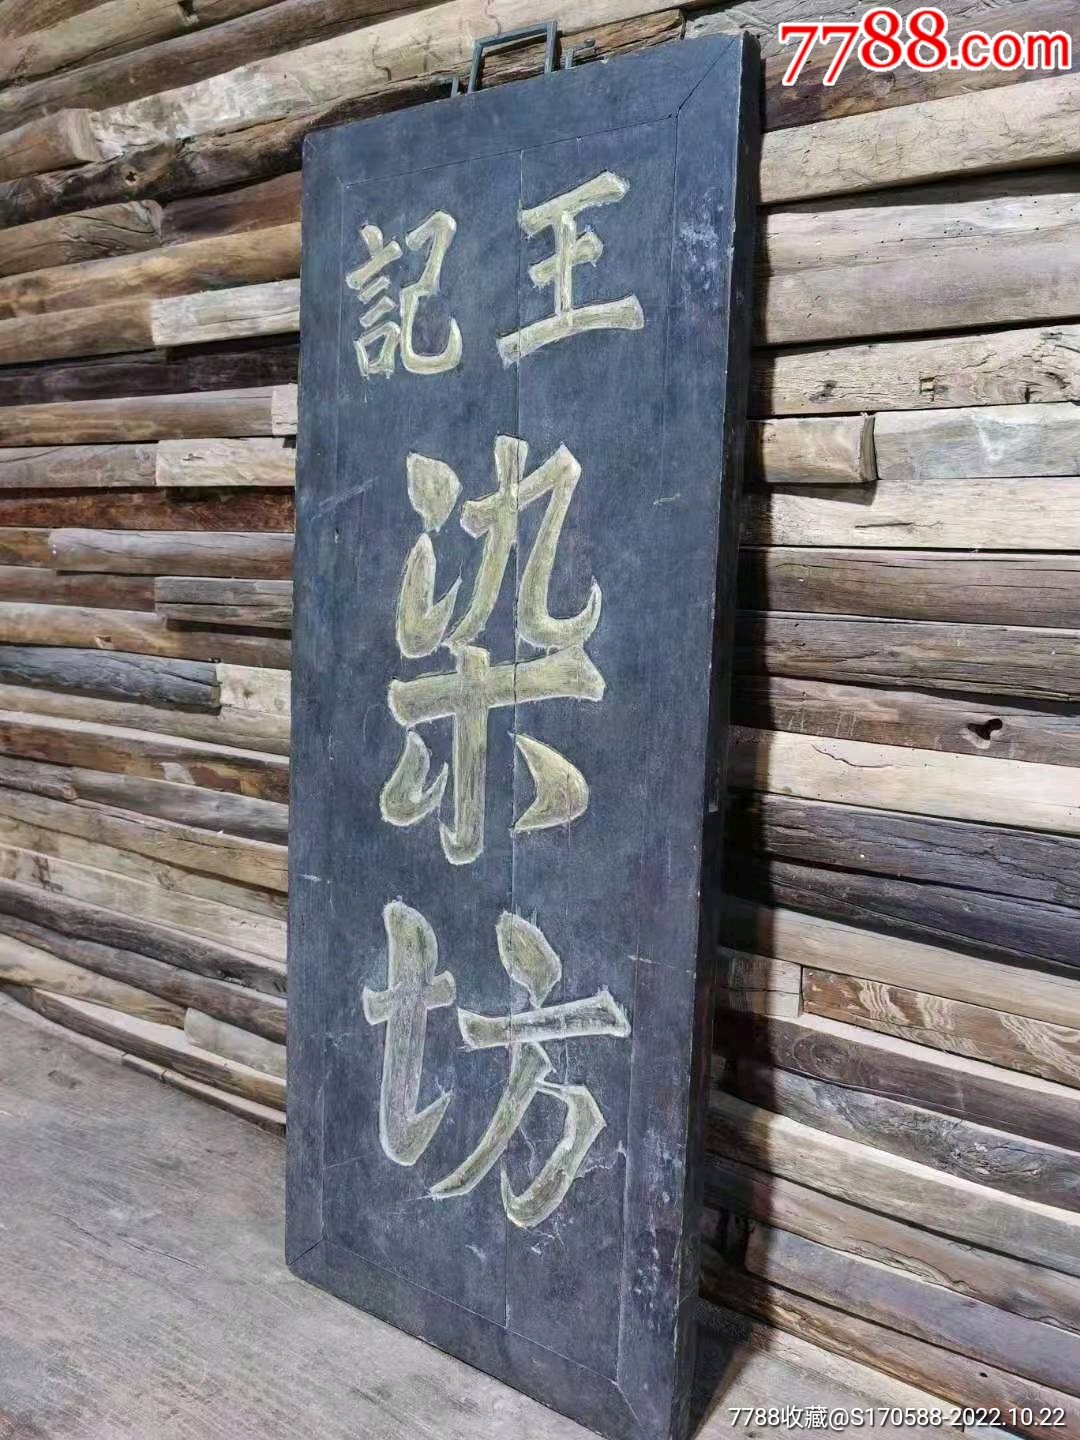 7788.com
王記
染
坊
7788收藏@S170588-2022.10.22